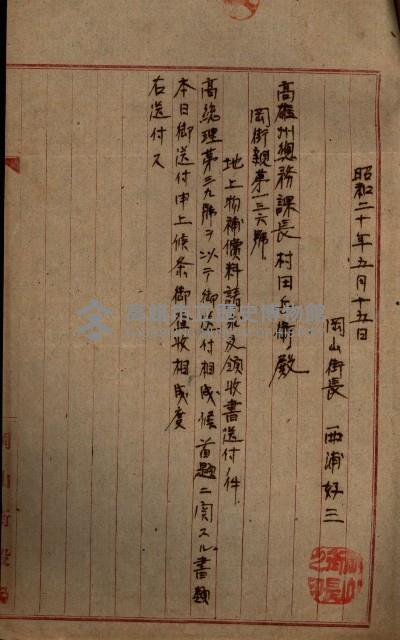 昭和二十年五月十五日
岡山街長 西浦好三
高雄州總務課長村田兵衛殿
岡街親第一三六號
地上物補償料請求及領收書送付ノ件
高總理第三九號ヲ以テ御送付相成候首題ニ関スル書類
本日御送付申上候条御査收相成度
右送付ス
高雄市立歷史博物館
岡山街役